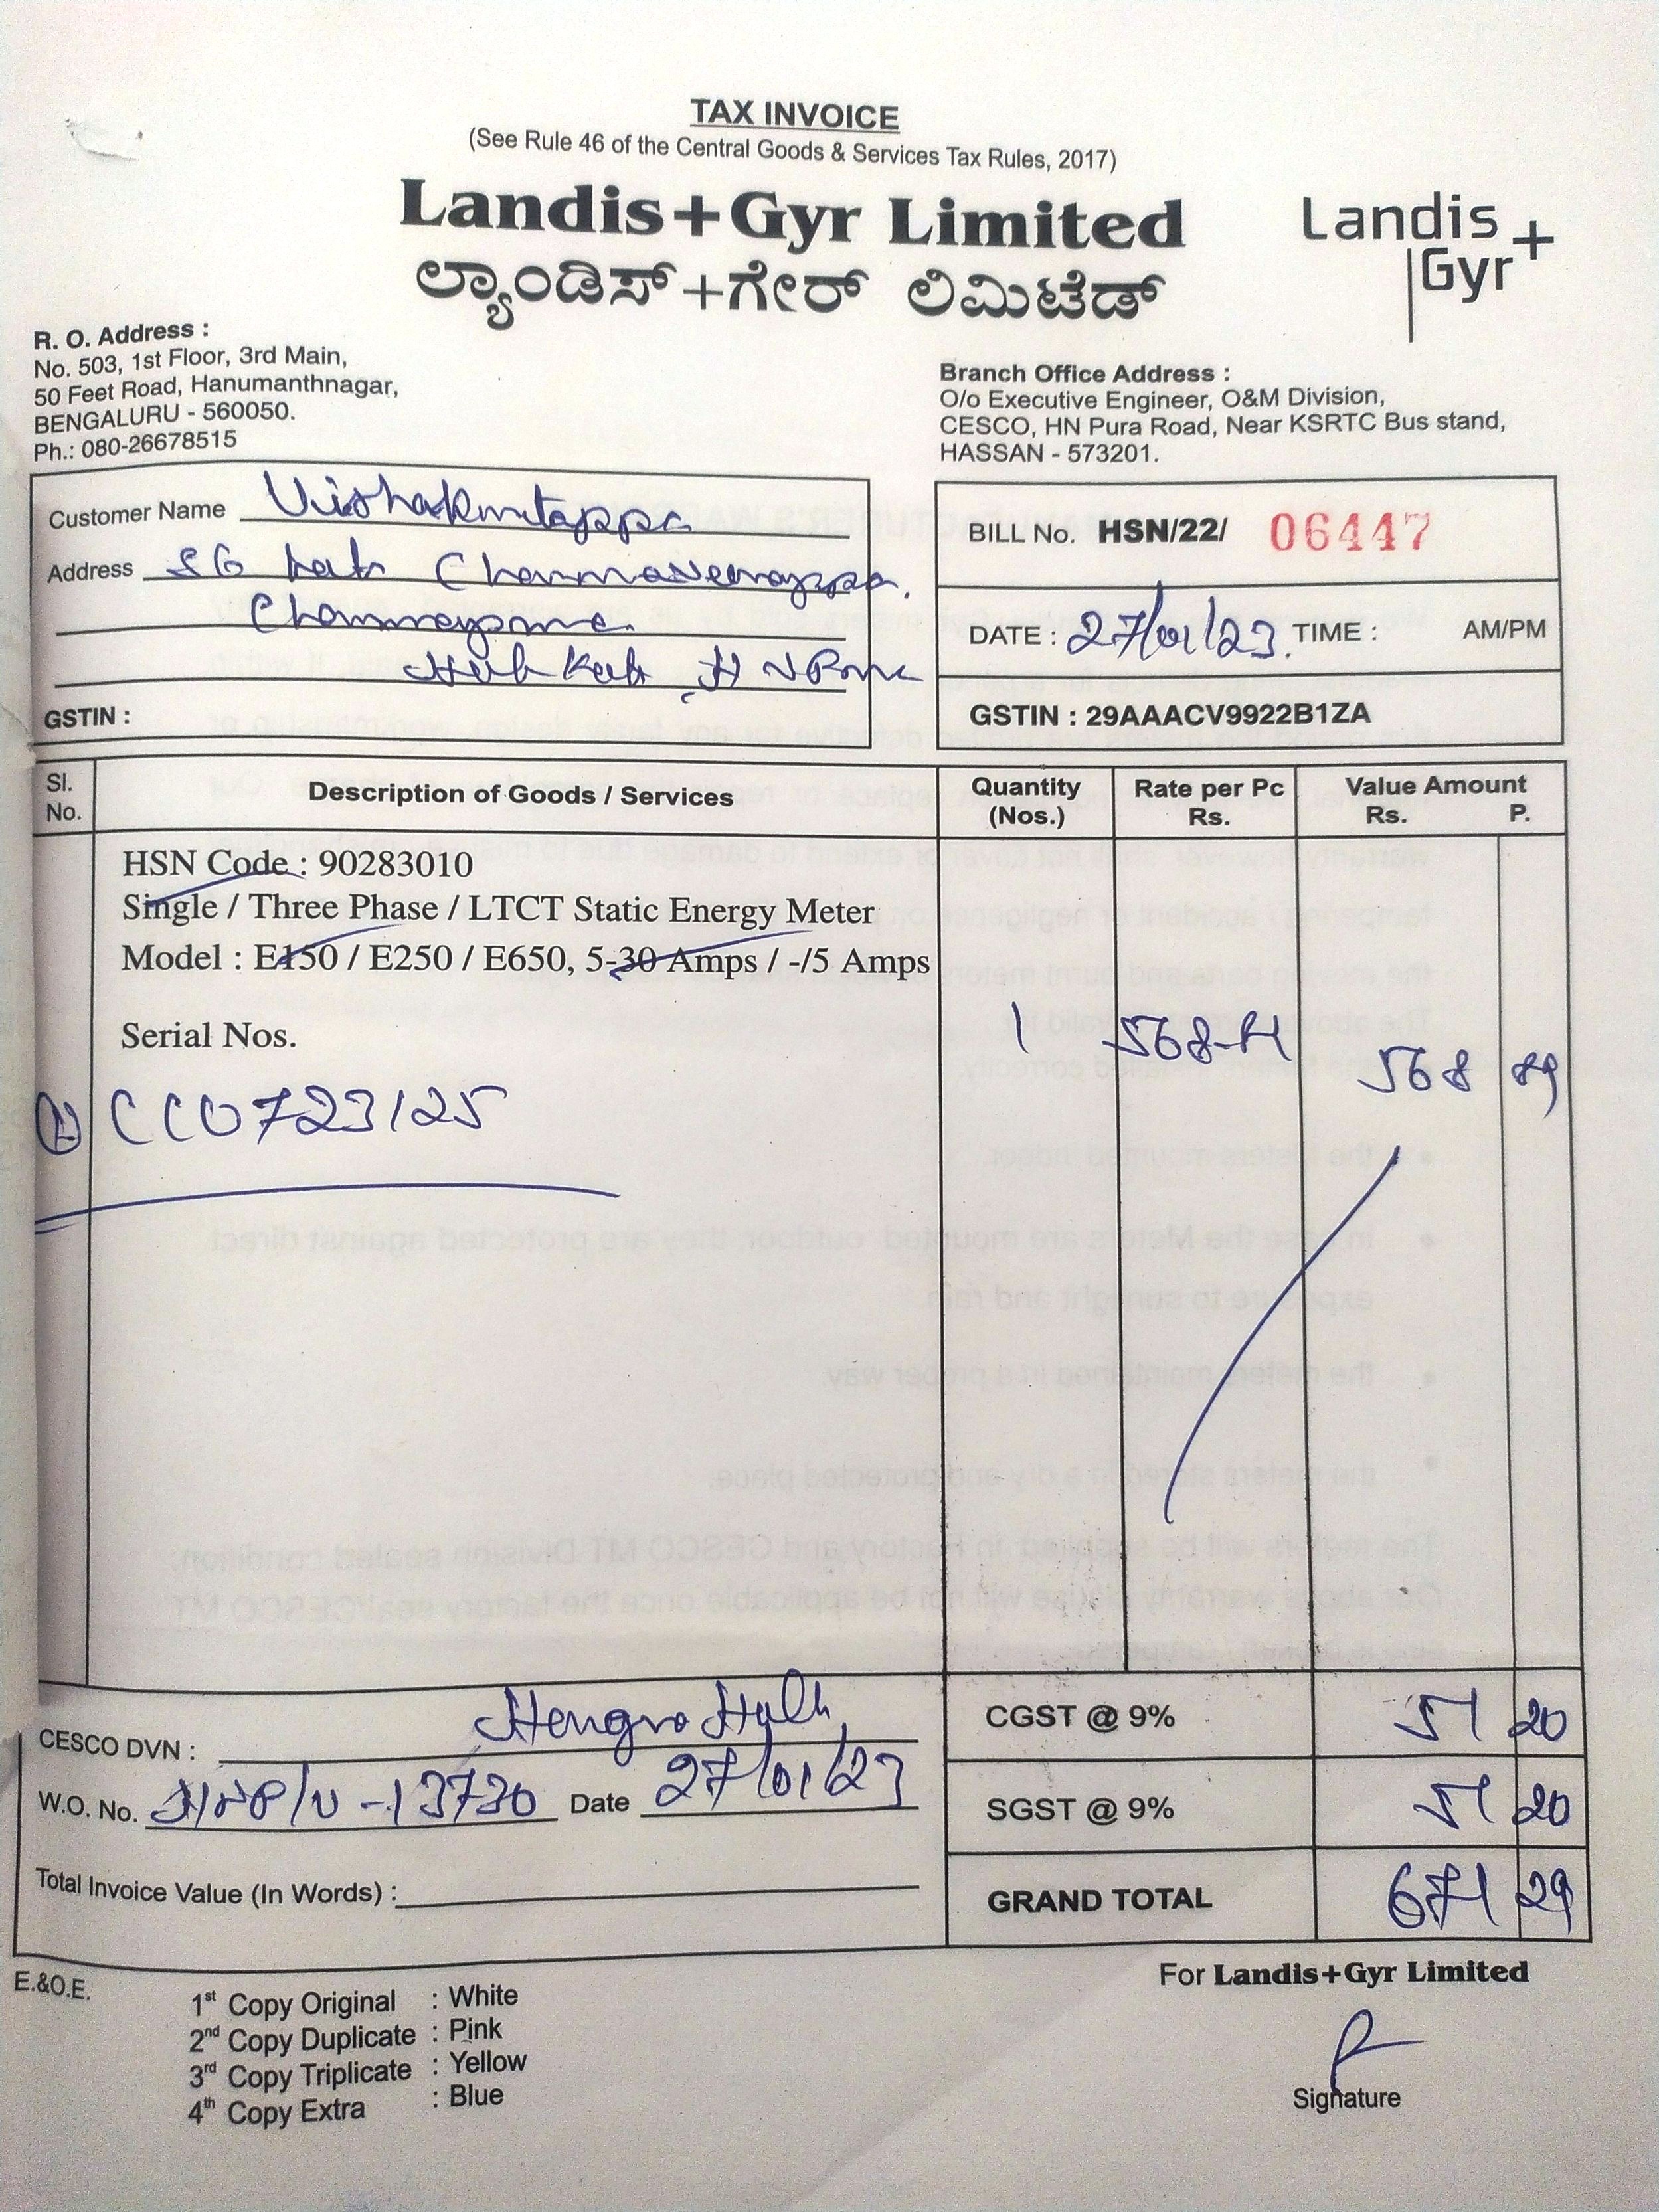 TAX INVOICE
(See Rule 46 of the Central Goods & Services Tax Rules, 2017)
Landis+Gyr Limited
ಲ್ಯಾಂಡಿಸ್+ಗೇರ್ ಲಿಮಿಟೆಡ್
Landis
Gyr+
R. O. Address :
No. 503, 1st Floor, 3rd Main,
50 Feet Road, Hanumanthnagar,
BENGALURU - 560050.
Ph.: 080-26678515
Branch Office Address :
O/o Executive Engineer, O&M Division,
CESCO, HN Pura Road, Near KSRTC Bus stand,
HASSAN - 573201.
Customer Name
Address SG
GSTIN :
BILL No. HSN/22/ 06447
DATE : 27/01/23. TIME : AM/PM
GSTIN : 29AAACV9922B1ZA
Sl. No. Description of Goods / Services Quantity (Nos.) Rate per Pc Rs. Value Amount Rs. P.
HSN Code : 90283010
Single / Three Phase / LTCT Static Energy Meter
Model : E150 / E250 / E650, 5-30 Amps / -/5 Amps
Serial Nos.
1 568 568 89
CC0723125
CESCO DVN :
W.O. No. Date 27/01/23
Total Invoice Value (In Words) :
CGST @ 9% 51 20
SGST @ 9% 51 20
GRAND TOTAL 671 29
E.&O.E.
1st Copy Original : White
2nd Copy Duplicate : Pink
3rd Copy Triplicate : Yellow
4th Copy Extra : Blue
For Landis+Gyr Limited
Signature